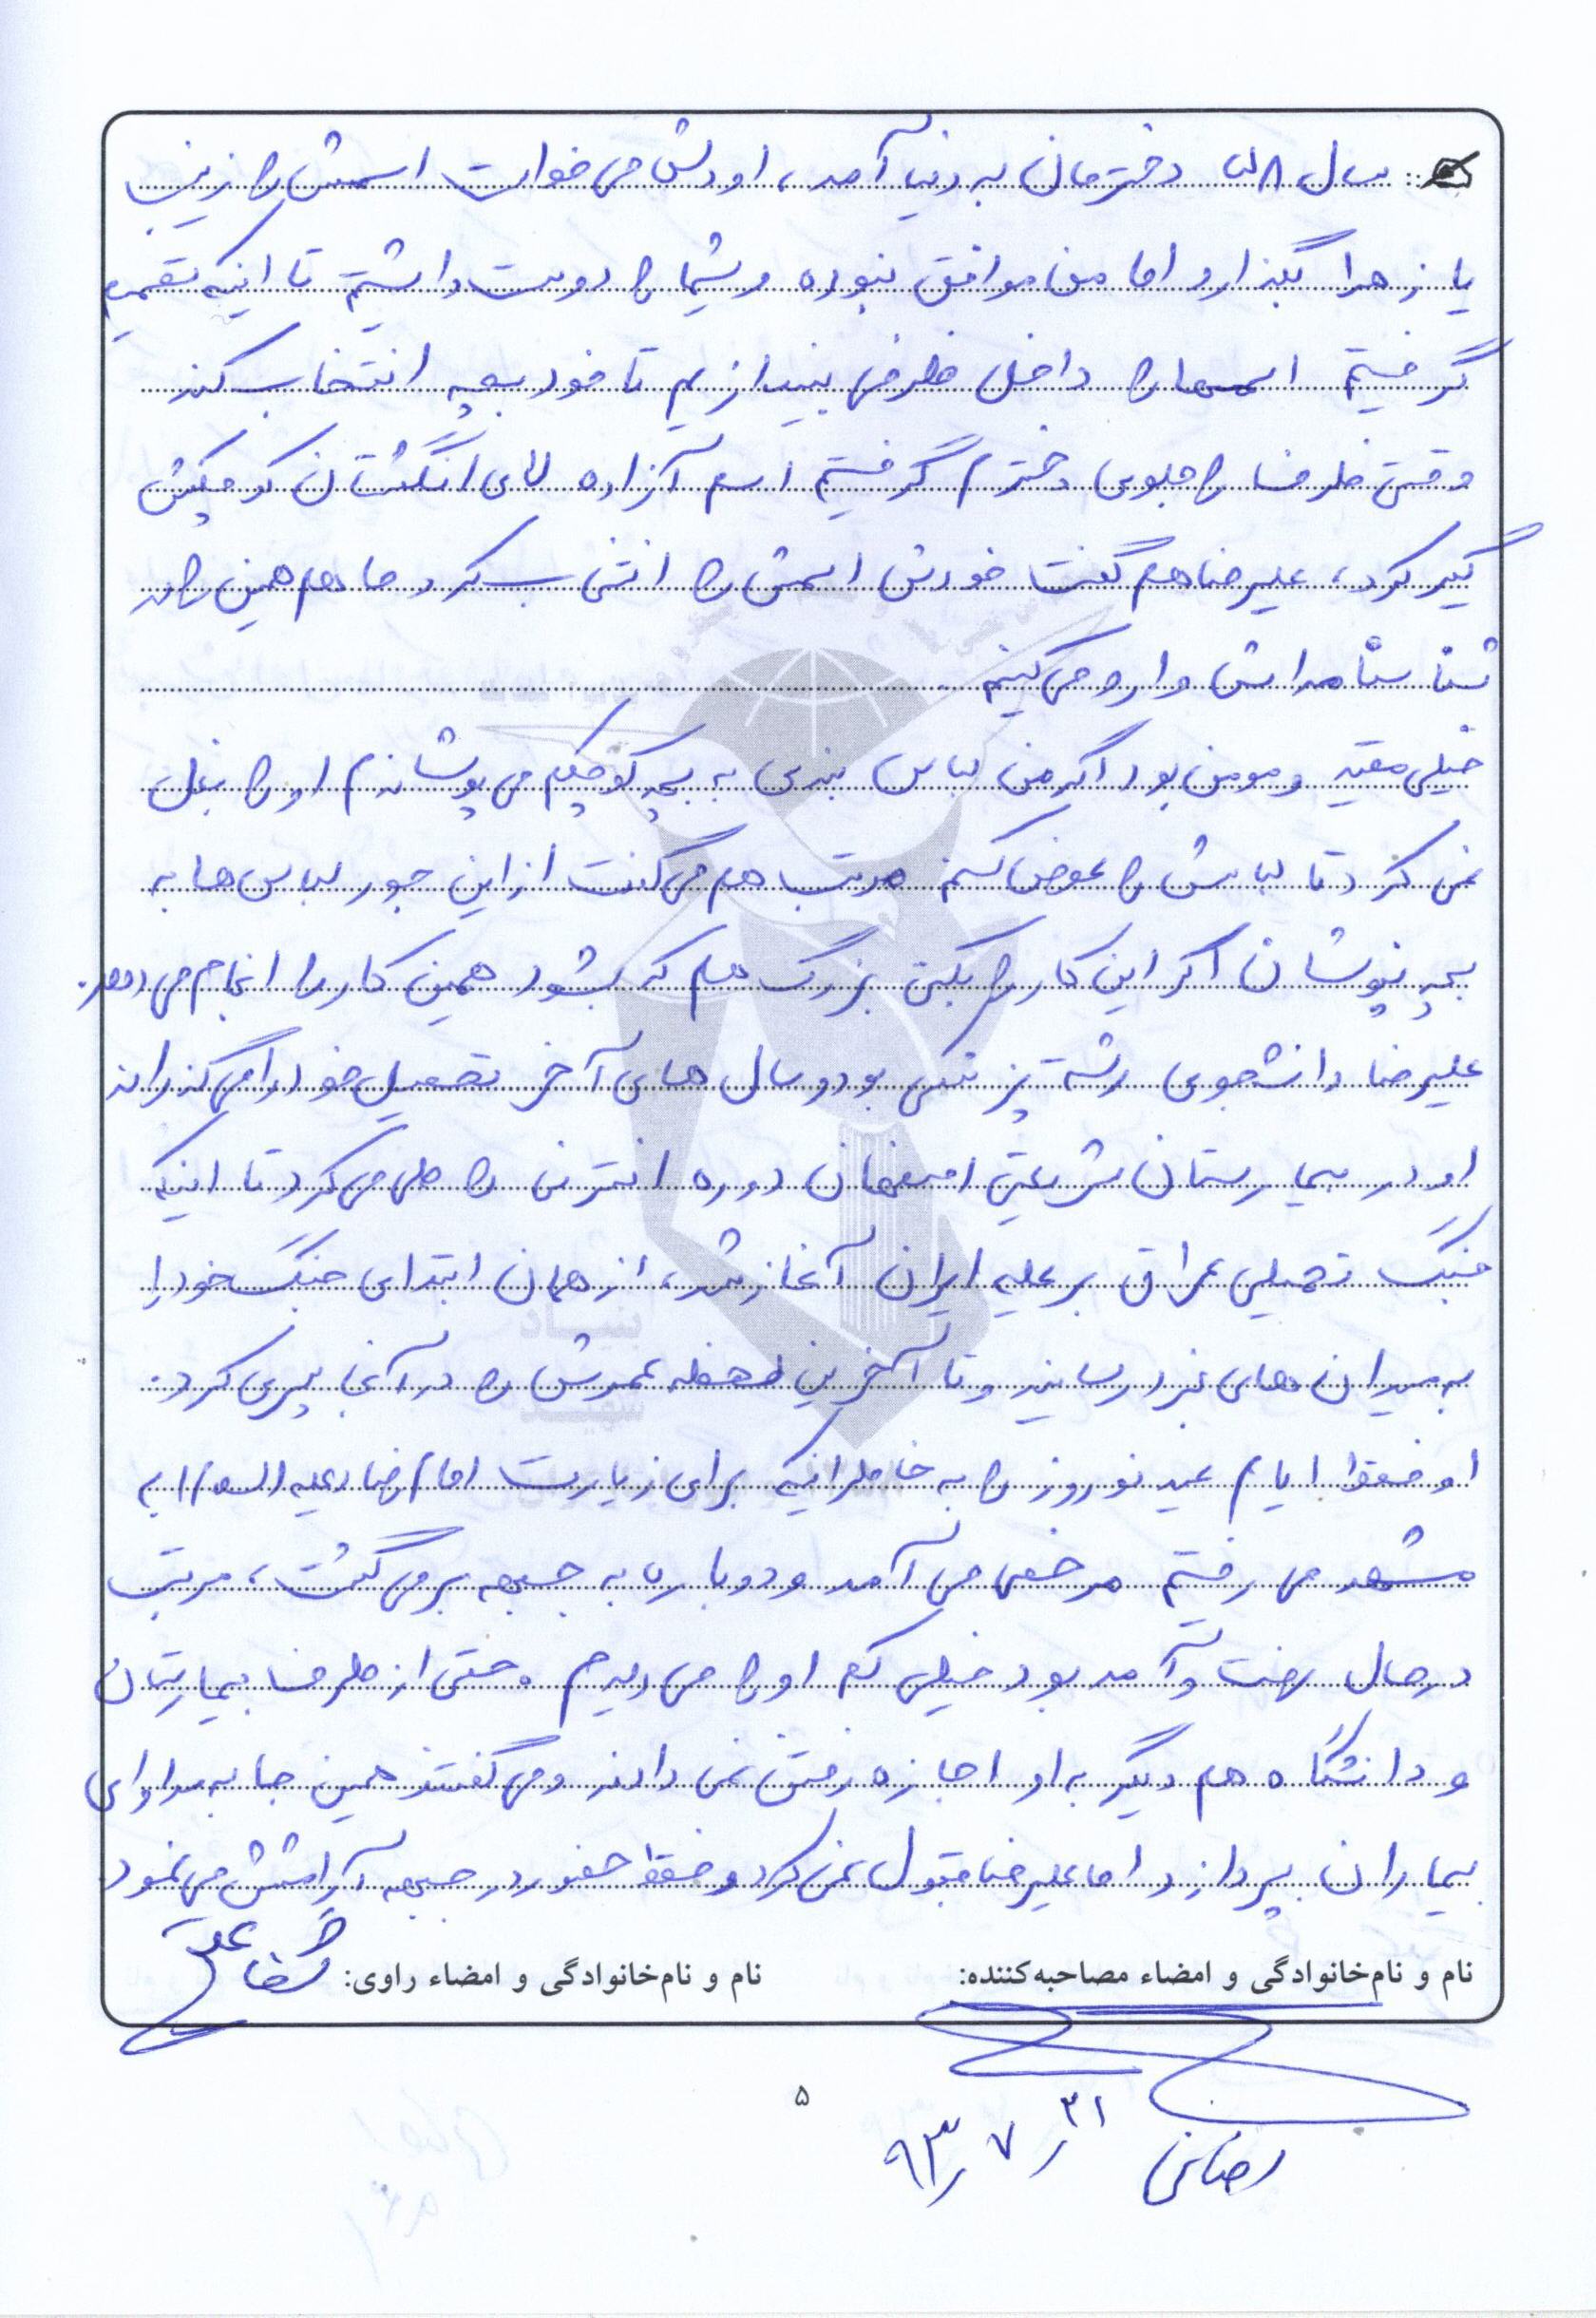 سال ۵۸ دخترمان به دنیا آمد، او دلش می خواست اسمش را زینب
یا زهرا بگذارد اما من موافق نبوده و شیما را دوست داشتم تا اینکه تصمیم
گرفتیم اسمها را داخل ظرفی بیندازیم تا خود بچه انتخاب کند
وقتی ظرف را جلوی دخترم گرفتیم اسم آزاده لای انگشتان کوچکش
گیر کرد، علیرضا هم گفت خودش اسمش را انتخاب کرد ما هم همین را در
شناسنامه اش وارد می کنیم
خیلی مقید و مومن بود اگر من لباس بندی به بچه کوچکم می پوشاندم او را بغل
نمی کرد تا لباسش را عوض کنم مرتب هم می گفت از این جور لباس ها به
بچه نپوشان اگر این کار را بکنی بزرگ هم که بشود همین کار را انجام می دهد.
علیرضا دانشجوی رشته پزشکی بود و سال های آخر تحصیل خود را می گذراند
او در بیمارستان شریعتی اصفهان دوره انترنی را طی می کرد تا اینکه
جنگ تحمیلی عراق بر علیه ایران آغاز شد، از همان ابتدای جنگ خود را
به میدان های نبرد رسانید و تا آخرین لحظه عمرش را در آنجا سپری کرد.
او فقط ایام عید نوروز را به خاطر اینکه برای زیارت امام رضا (علیه السلام) به
مشهد می رفتیم مرخصی می آمد و دوباره به جبهه برمی گشت، مرتب
در حال رفت و آمد بود خیلی کم او را می دیدم. حتی از طرف بیمارستان
و دانشگاه هم دیگر به او اجازه رفتن نمی دادند و می گفتند همین جا به مداوای
بیماران بپردازد اما علیرضا قبول نمی کرد و فقط حضور در جبهه آرامشش می نمود
نام و نام‌خانوادگی و امضاء مصاحبه‌کننده: نام و نام‌خانوادگی و امضاء راوی:
۵
۹۳/۷/۲۱
بنیاد
شهید